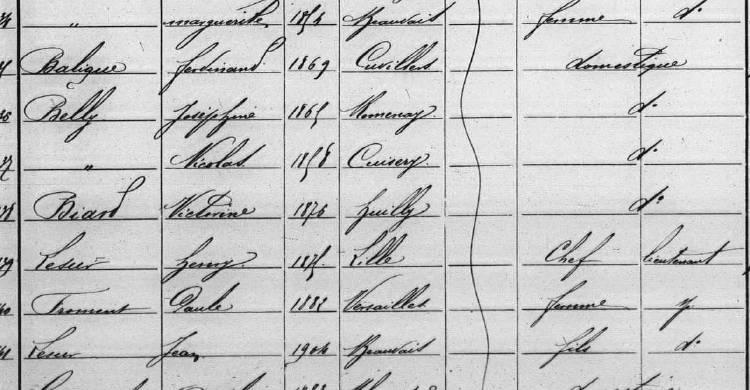 " marguerite 1854 Beauvais femme d°
Balique Ferdinand 1869 Cuvillers domestique
Belly Joséphine 1865 Romenay d°
" Nicolas 1858 Cuisery d°
Biard Victorine 1876 huilly d°
Lesur henry 1875 Lille Chef lieutenant
Froment Paule 1882 Versailles femme
Lesur Jean 1904 Beauvais fils d°